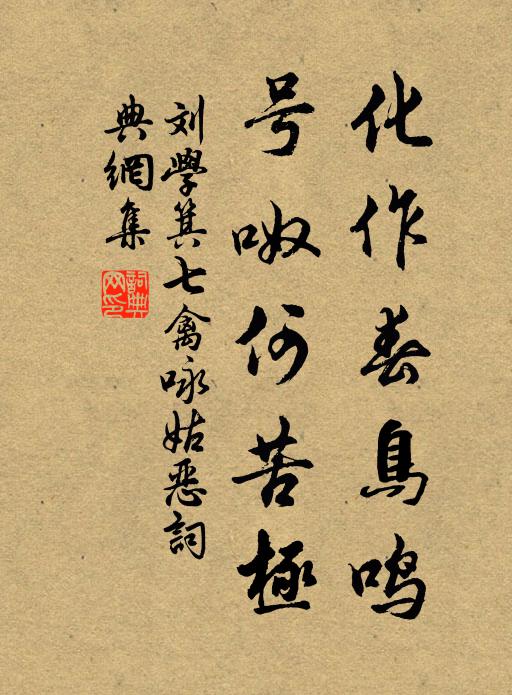 化作春鳥鸣
号呶何苦極
刘學箕七禽咏姑惡詞
典網集
詞典网印